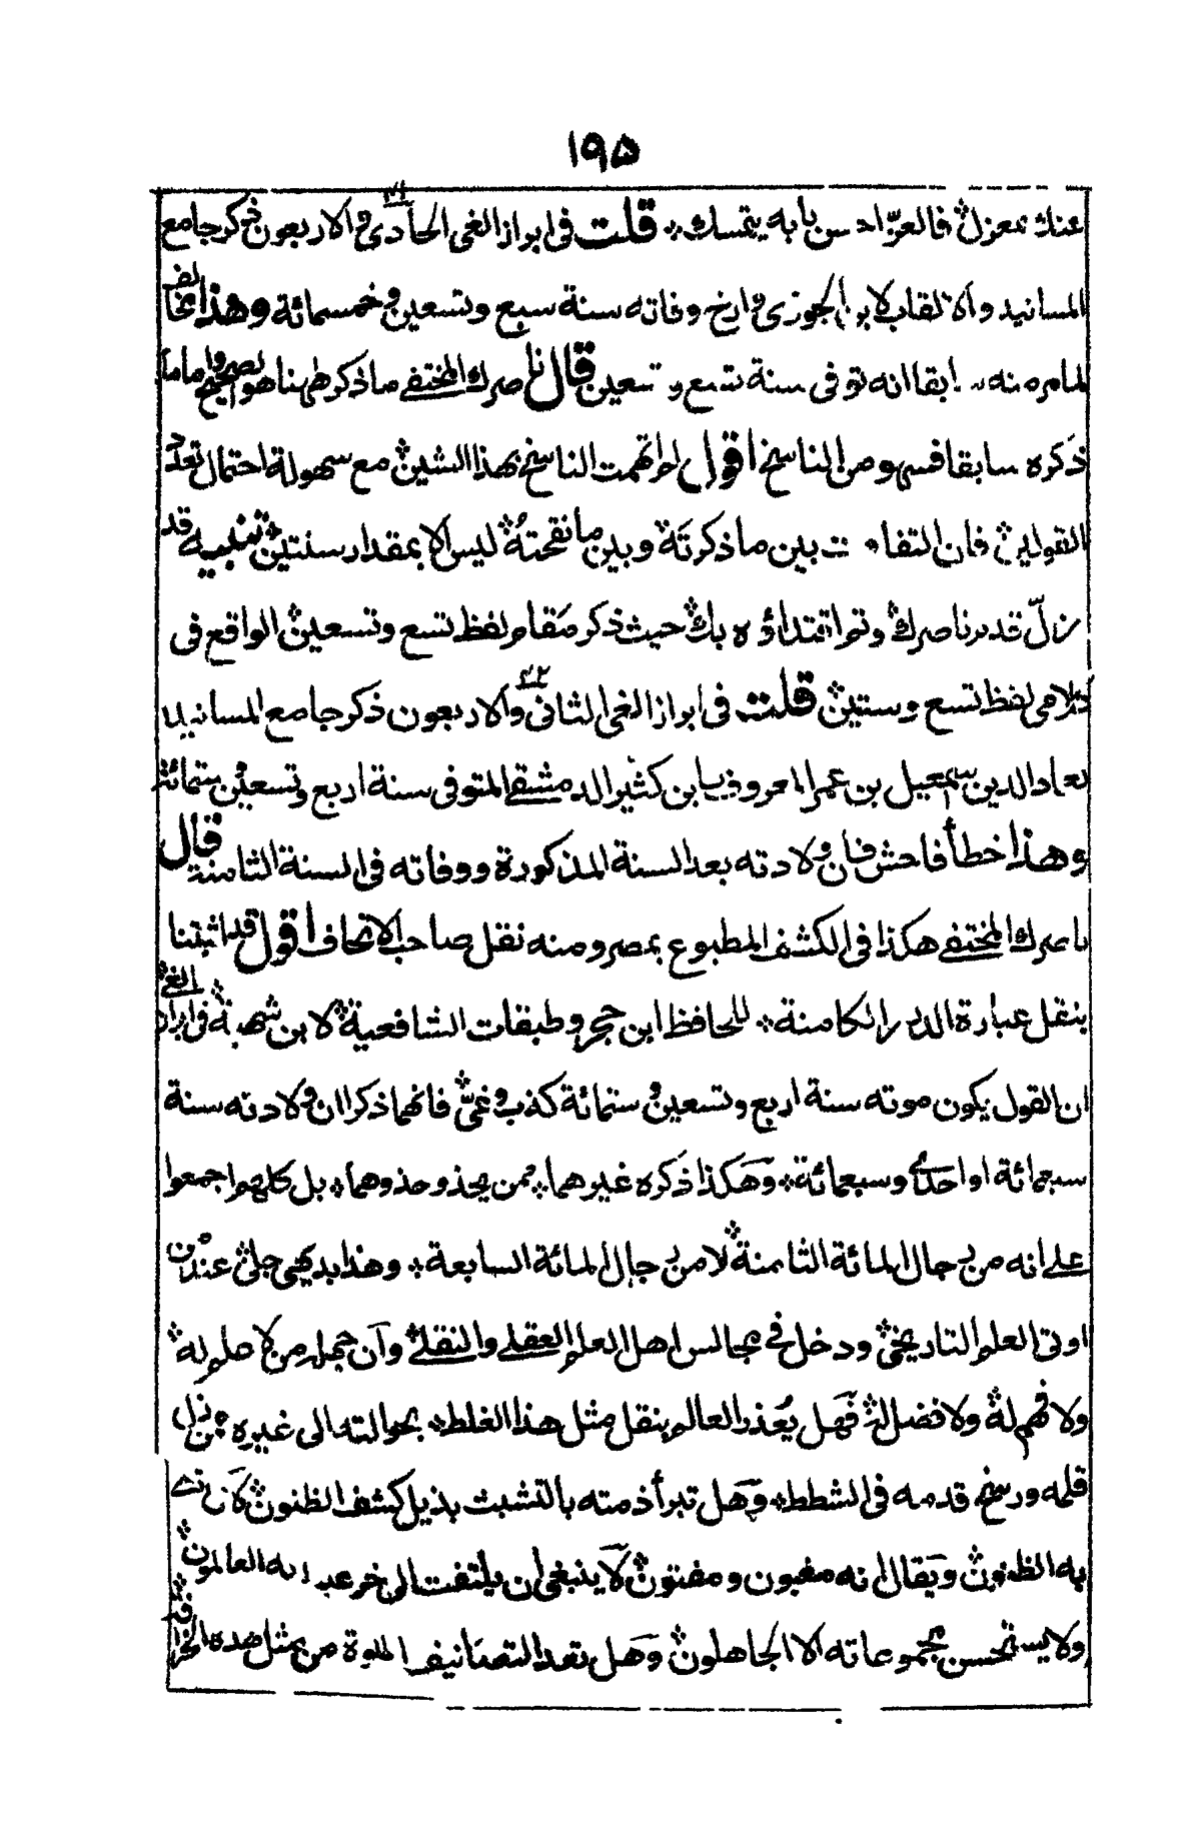 ١٩٥
عنك بمعزل فالعزّاد من بابه يتمسك قلت فى ابراز الغى الحادى والاربعون ذكر جامع
٤١
المسانيد والالقاب لابن الجوزى وارخ وفاته سنة سبع وتسعين وخمسمائة وهذا يخالف
لمامر منه سابقا انه توفى سنة تسع وتسعين قال ناصرك المختفے ماذكر ههنا هو الصحيح واما ما
ذكره سابقا فسهو من الناسخ اقول لم اتهمت الناسخ بهذا الشين مع سهولة احتمال تعدد
القولين فان التفاوت بين ما ذكرتَه وبين ما نقحتُه ليس الا بمقدار سنتين تنبيه قد
زلّ قدم ناصرك وتم اقتداؤه بك حيث ذكر مقام لفظ تسع وتسعين الواقع فى
كلامى لفظ تسع وستين قلت فى ابراز الغى الثانى والاربعون ذكر جامع المسانيد
٤٢
لعماد الدين اسمعيل بن عمر المعروف بابن كثير الدمشقے المتوفى سنة اربع وتسعين ستمائة
وهذا خطأ فاحش فان ولادته بعد السنة المذكورة ووفاته فى السنة الثامنة قال
ناصرك المختفے هكذا فى الكشف المطبوع بمصر ومنه نقل صاحب الاتحاف اقول قد اثبتنا
بنقل عبارة الدرر الكامنة للحافظ ابن حجر وطبقات الشافعية لابن شهبة فى ابراز الغے
ان القول بكون موته سنة اربع وتسعين وستمائة كذب وغىّ فانهما ذكرا ان ولادته سنة
سبعمائة او احدے وسبعمائة وهكذا ذكره غيرهما ممن يحذو حذوهما بل كلهم اجمعوا
علے انه من رجال المائة الثامنة لا من رجال المائة السابعة وهذا بديهى جلى عند من
اوتى العلم التاريخى ودخل فى مجالس اهل العلم العقلے والنقلے وان جهله من لا علم له
ولا فهم له ولا فضل له فهل يُعذر العالم بنقل مثل هذا الغلط بحوالته الى غيره ممن زل
قلمه ورسخ قدمه فى الشطط وهل تبرأ ذمته بالتشبث بذيل كشف الظنون كلا
به الظنون ويقال انه مغبون ومفتون لا ينبغى ان يلتفت الى العالمون
ولا يستحسن مجموعاته الا الجاهلون وهل تعد التصانيف المملوة من مثل هذه